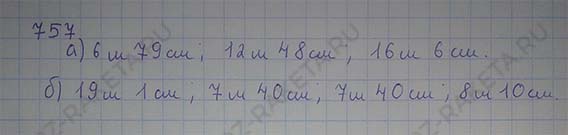 757
а) 6 м 79 см; 12 м 48 см, 16 м 6 см.
б) 19 м 1 см; 7 м 40 см; 7 м 40 см; 8 м 10 см.